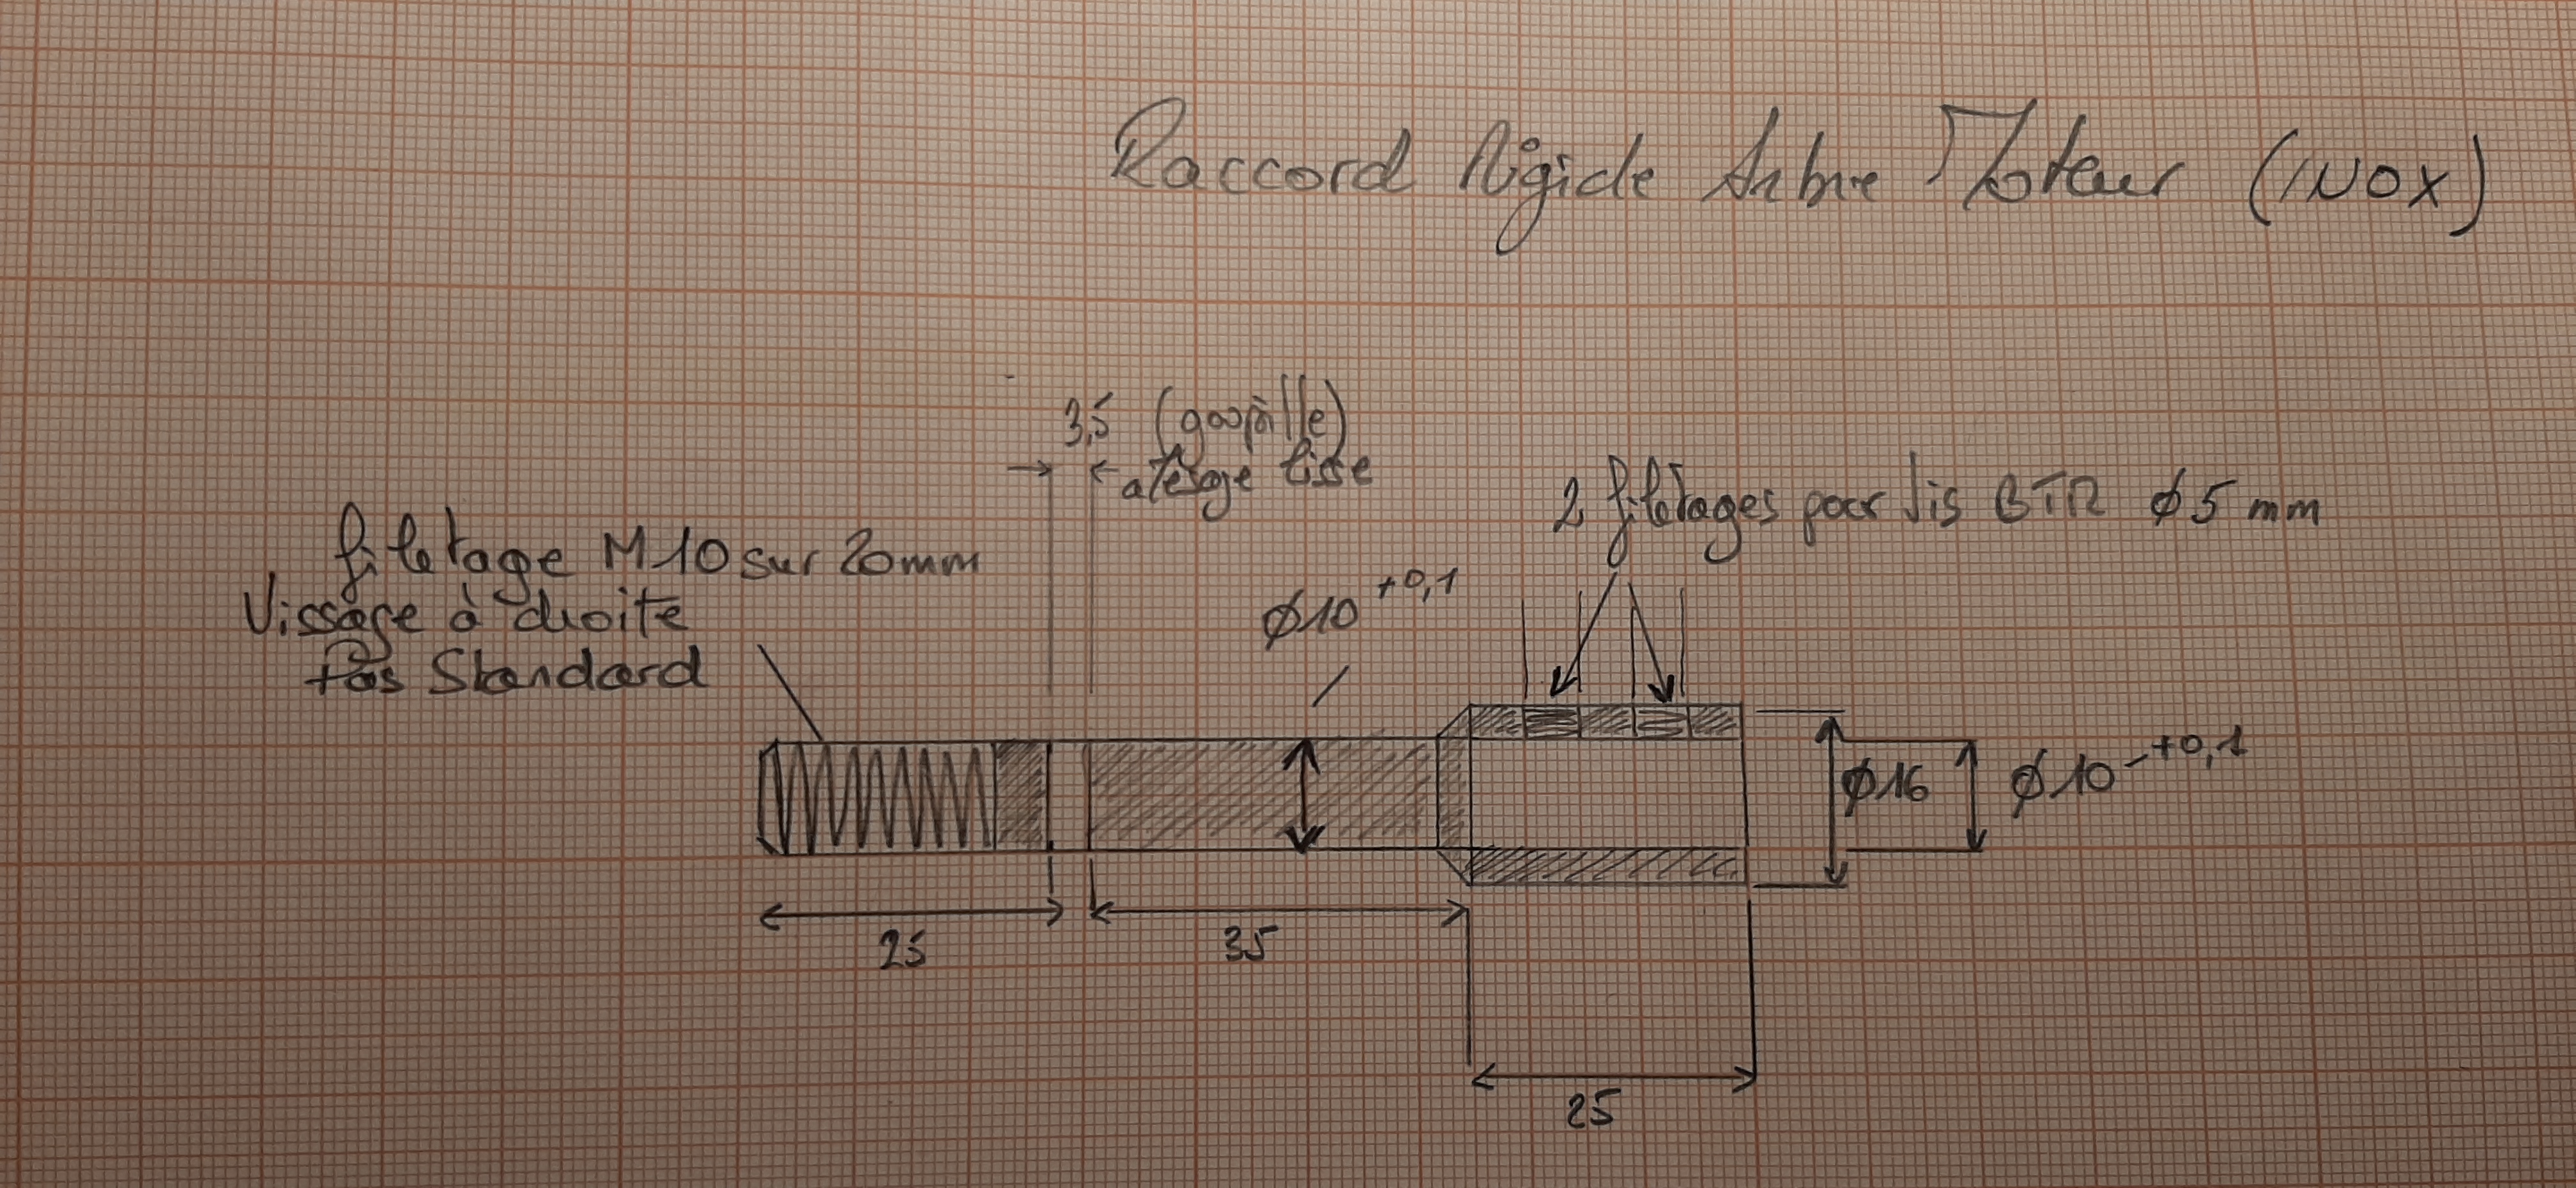 Raccord Rigide Arbre Moteur (INOX)
3,5 (goupille)
alésage lisse
2 filetages pour vis BTR ϕ5 mm
filetage M10 sur 20mm
Vissage à droite
Pas Standard
ϕ10 +0,1
ϕ16
ϕ10 +0,1
25
35
25